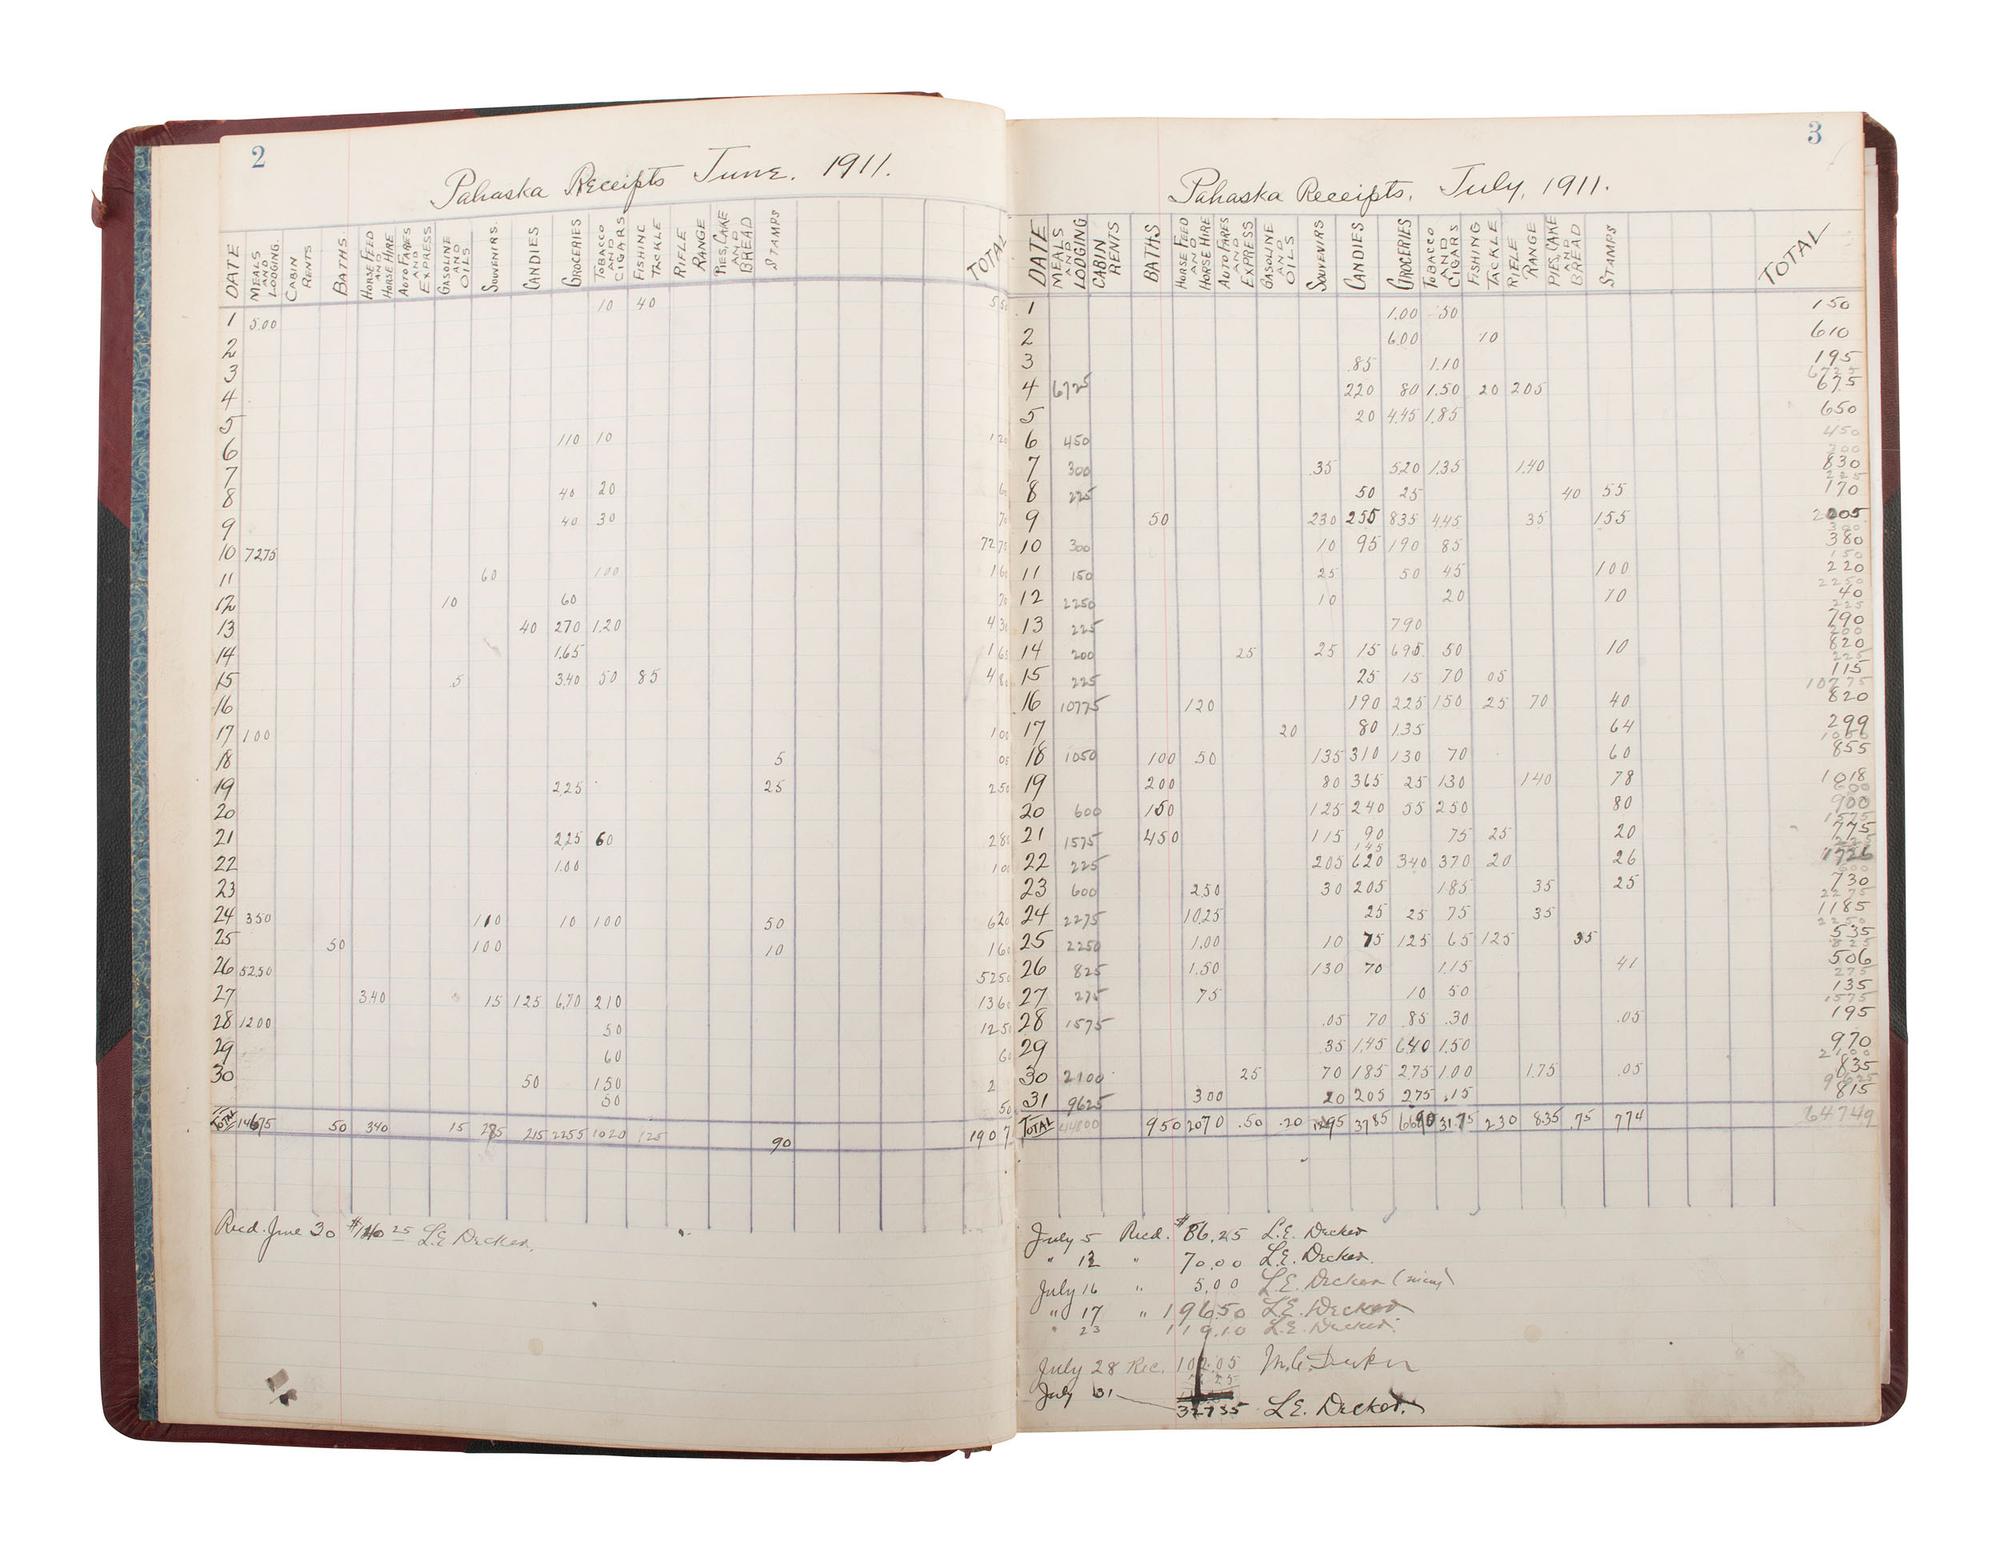 2
Pahaska Receipts June. 1911.
DATE MEALS AND LODGING. CABIN RENTS BATHS. HORSE FEED AND HORSE HIRE AUTO FARES AND EXPRESS GASOLINE AND OILS SOUVENIRS. CANDIES GROCERIES TOBACCO AND CIGARS FISHING TACKLE RIFLE RANGE PIES, CAKE AND BREAD STAMPS TOTAL
1 5.00 10 40 5 50
2
3
4
5
6 110 10 1 20
7
8 40 20
9 40 30 70
10 7275 7275
11 60 100 1 60
12 10 60 70
13 40 270 1.20 4 30
14 1.65 1 65
15 .5 3.40 50 85 4 80
16
17 1.00 1 00
18 5 05
19 2.25 25 2 50
20
21 2.25 60 2 80
22 1.00 1 00
23
24 350 110 10 100 50 620
25 50 100 10 160
26 5250 5250
27 340 15 125 6.70 210 1360
28 1200 50 1250
29 60 60
30 50 150 2
50 50
TOTAL 14675 50 340 15 285 215 2255 1020 125 90 190 7
Recd. June 30 $140 25 L.E. Decker.
3
Pahaska Receipts, July, 1911.
DATE MEALS AND LODGING CABIN RENTS BATHS HORSE FEED AND HORSE HIRE AUTO FARES AND EXPRESS GASOLINE AND OILS SOUVENIRS CANDIES GROCERIES TOBACCO AND CIGARS FISHING TACKLE RIFLE RANGE PIES, CAKE AND BREAD STAMPS TOTAL
1 1.00 .50 150
2 6.00 10 610
3 .85 1.10 195
6725
4 6725 220 80 1.50 20 205 675
5 20 4.45 1.85 650
6 450 450
300
7 300 .35 520 1.35 1.40 830
225
8 225 50 25 40 55 170
9 50 230 255 835 445 35 155 2005
300
10 300 10 95 190 85 380
150
11 150 25 50 45 100 220
2250
12 2250 10 20 70 40
225
13 225 790 790
200
14 200 25 25 15 695. 50 10 820
225
15 225 25 15 70 05 115
10775
16 10775 120 190 225 150 25 70 40 820
17 20 80 1.35 64 299
1050
18 1050 100 50 135 310 130 70 60 855
19 200 80 365 25 130 140 78 1018
600
20 600 150 125 240 55 250 80 900
1575
21 1575 450 115 90 75 25 20 775
145 225
22 225 205 620 340 370 20 26 1726
600
23 600 250 30 205 185 35 25 730
2275
24 2275 1025 25 25 75 35 1185
2250
25 2250 1.00 10 75 125 65 125 35 535
825
26 825 1.50 130 70 1.15 41 506
275
27 275 75 10 50 135
1575
28 1575 .05 70 .85 .30 .05 195
29 35 1.45 640 1.50 970
2100
30 2100 25 70 185 275 1.00 1.75 .05 835
9625
31 9625 300 20 205 275 .15 815
TOTAL 44800 950 2070 .50 .20 1295 3785 6690 31.75 230 8.35 .75 774 64749
July 5 Recd. $86.25 L.E. Decker
" 12 " 70.00 L.E. Decker.
July 16 " 5.00 L.E. Decker
" 17 " 196.50 L.E. Decker
" 23 119.10 L.E. Decker.
July 28 Rec. 102.05
July 31 32735 L.E. Decker.